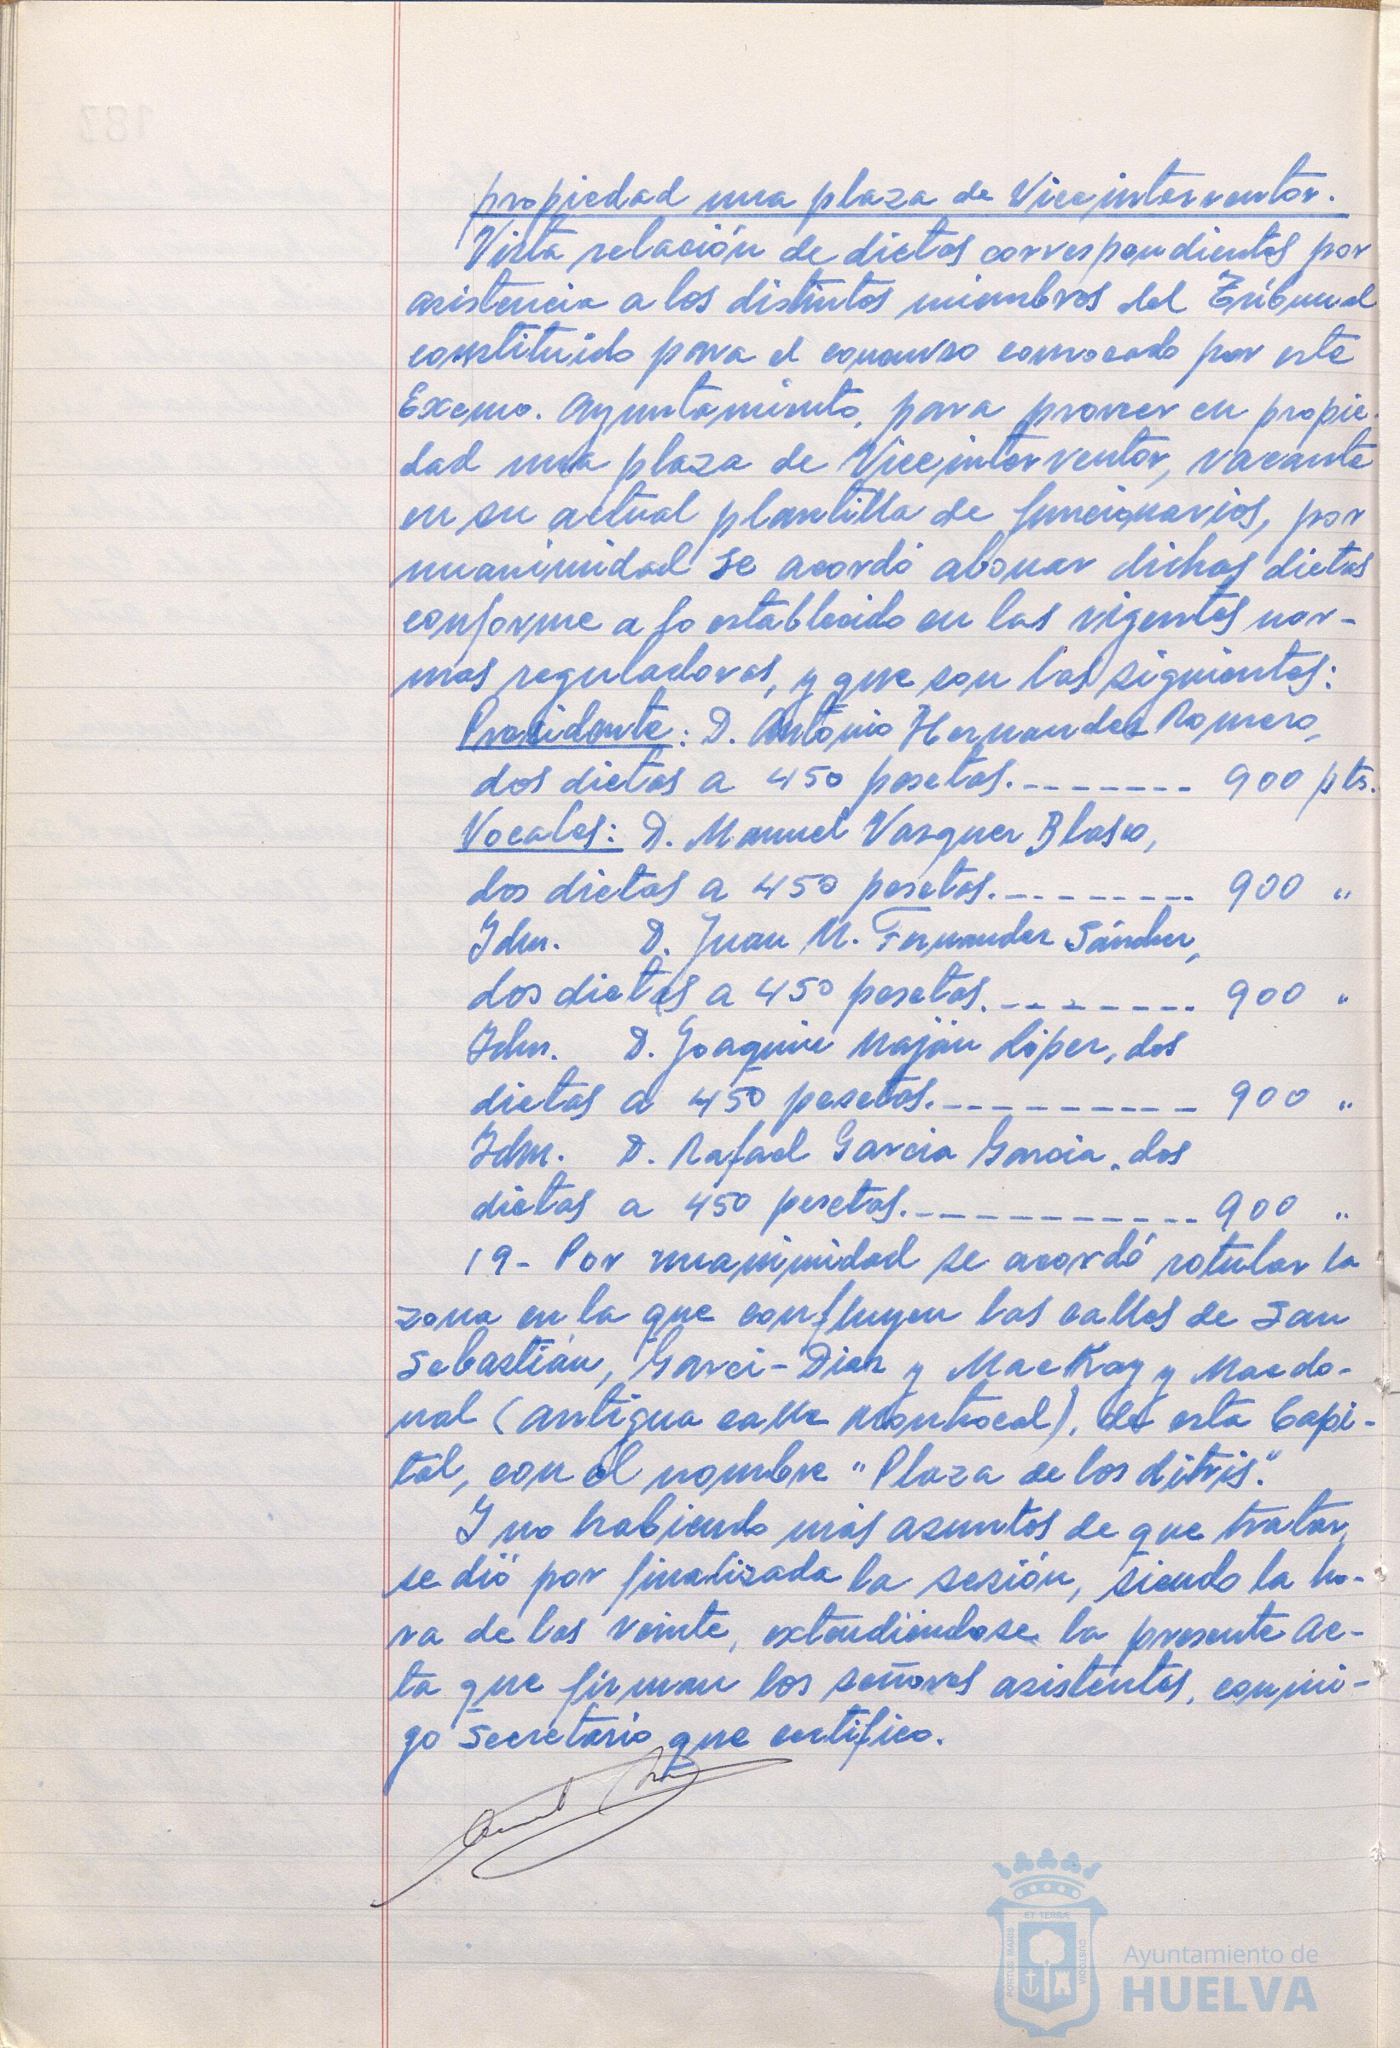 propiedad una plaza de Viceinterventor.
Vista relación de dietas correspondientes por
asistencia a los distintos miembros del Tribunal
constituido para el concurso convocado por este
Excmo. Ayuntamiento, para proveer en propie-
dad una plaza de Viceinterventor, vacante
en su actual plantilla de funcionarios, por
unanimidad se acordó abonar dichas dietas
conforme a lo establecido en las vigentes nor-
mas reguladoras, y que son las siguientes:
Presidente: D. Antonio Hernandez Romero,
dos dietas a 450 pesetas.-------- 900 pts.
Vocales: D. Manuel Vazquez Blasco,
dos dietas a 450 pesetas.-------- 900 "
Idm. D. Juan M. Fernandez Sánchez,
dos dietas a 450 pesetas.-------- 900 "
Idm. D. Joaquín Naján López, dos
dietas a 450 pesetas.---------- 900 "
Idm. D. Rafael Garcia Garcia, dos
dietas a 450 pesetas.----------- 900 "
19- Por unanimidad se acordó rotular la
zona en la que confluyen las calles de San
Sebastián, Garci-Diez y MacKay y Macdo-
nal (antigua calle Montrocal), de esta Capi-
tal, con el nombre "Plaza de los ditris".
Y no habiendo más asuntos de que tratar,
se dió por finalizada la sesión, siendo la ho-
ra de las veinte, extendiéndose la presente Ac-
ta que firman los señores asistentes, conmi-
go Secretario que certifico.
PORTUS MARIS
ET TERRÆ
CUSTODIA
Ayuntamiento de
HUELVA